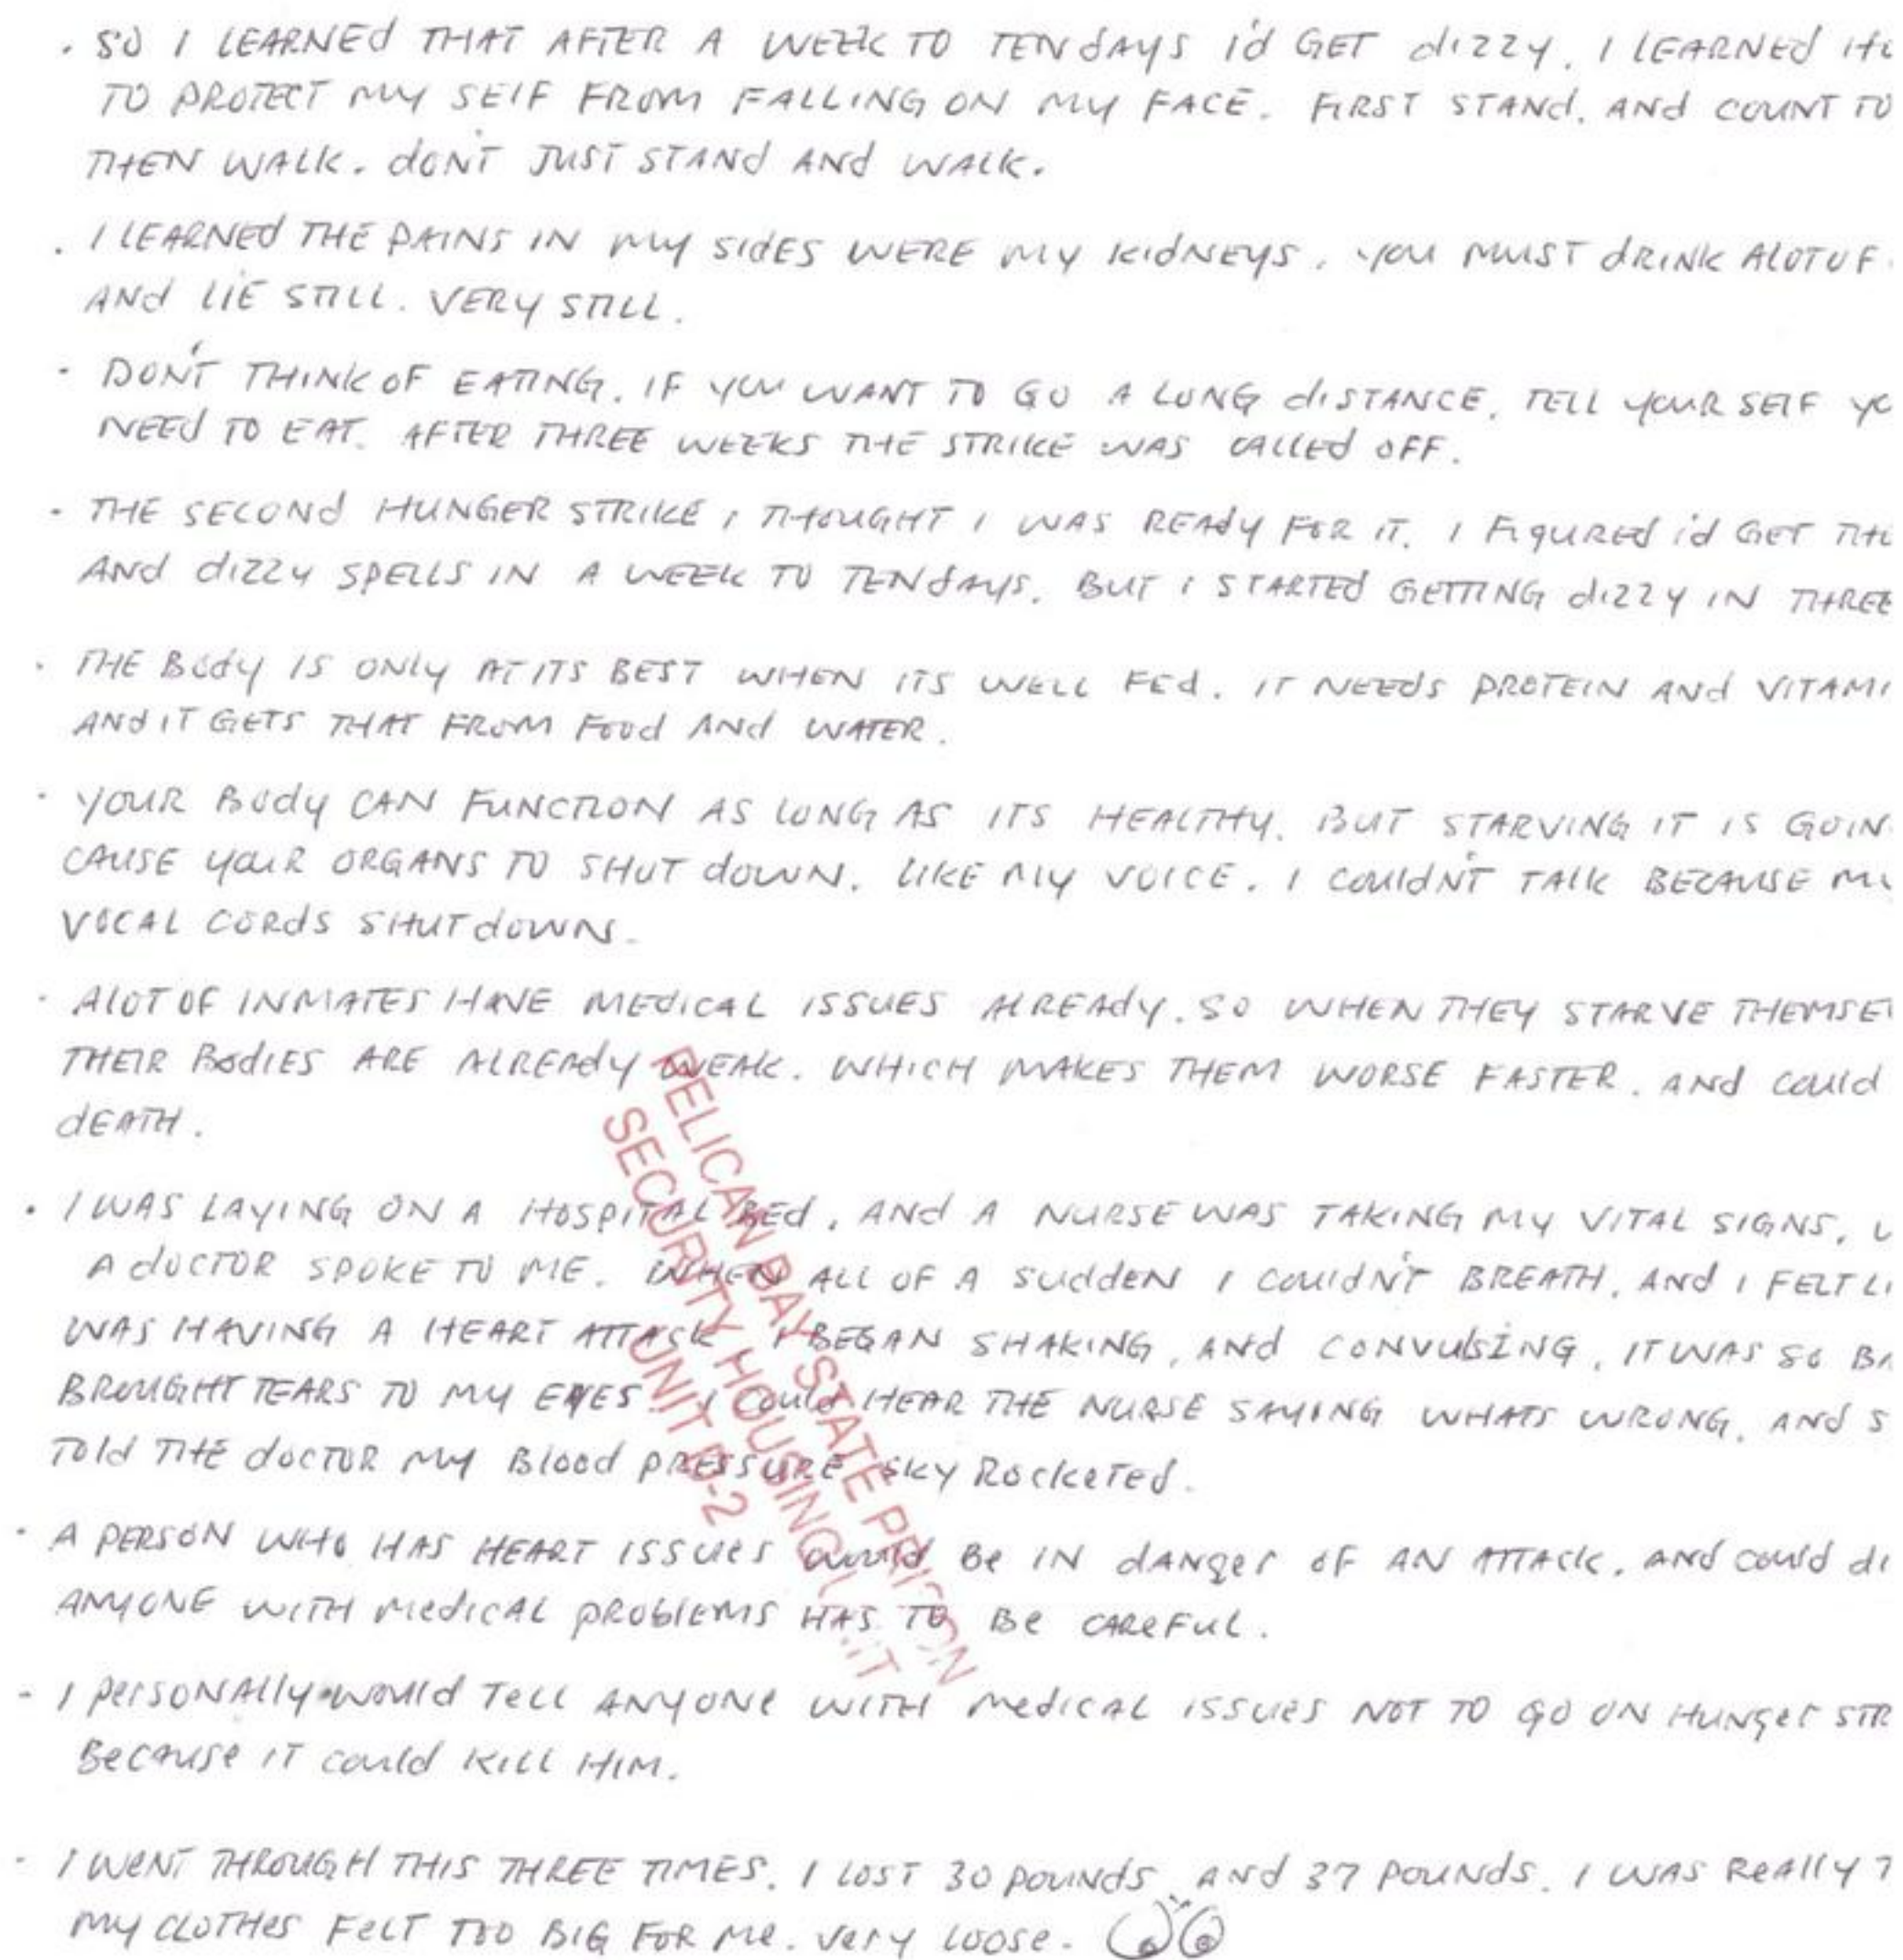 . SO I LEARNEd THAT AFTER A WEEK TO TEN dAYS I'd GET dIZZY. I LEARNEd
TO PROTECT MY SELF FROM FALLING ON MY FACE. FIRST STANd. ANd COUNT TO
THEN WALK. dON'T JUST STANd ANd WALK.
. I LEARNEd THE PAINS IN MY SIdES WERE MY KIdNEYS. YOU MUST dRINK ALOT OF
ANd LIE STILL. VERY STILL.
- DON'T THINK OF EATING. IF YOU WANT TO GO A LONG dISTANCE. TELL YOUR SELF
NEEd TO EAT. AFTER THREE WEEKS THE STRIKE WAS CALLEd OFF.
- THE SECONd HUNGER STRIKE I THOUGHT I WAS REAdY FOR IT. I FIGUREd I'd GET
ANd dIZZY SPELLS IN A WEEK TO TEN dAYS. BUT I STARTEd GETTING dIZZY IN THREE
. THE BOdY IS ONLY AT ITS BEST WHEN ITS WELL FEd. IT NEEdS PROTEIN ANd VITAMI
ANd IT GETS THAT FROM FOOd ANd WATER.
. YOUR BOdY CAN FUNCTION AS LONG AS ITS HEALTHY. BUT STARVING IT IS GOIN
CAUSE YOUR ORGANS TO SHUT dOWN. LIKE MY VOICE. I COULdN'T TALK BECAUSE MY
VOCAL CORdS SHUT dOWN.
- ALOT OF INMATES HAVE MEdICAL ISSUES ALREAdY. SO WHEN THEY STARVE THEMSE
THEIR BOdIES ARE ALREAdY WEAK. WHICH MAKES THEM WORSE FASTER. ANd COULd
dEATH.
. I WAS LAYING ON A HOSPITAL BEd. ANd A NURSE WAS TAKING MY VITAL SIGNS,
A dOCTOR SPOKE TO ME. WHEN ALL OF A SUddEN I COULdN'T BREATH. ANd I FELT LI
WAS HAVING A HEART ATTACK. I BEGAN SHAKING, ANd CONVULSING. IT WAS SO BA
BROUGHT TEARS TO MY EYES. I COULd HEAR THE NURSE SAYING WHATS WRONG. ANd S
TOLd THE dOCTOR MY BLOOd PRESSURE SKY ROCKETEd.
- A PERSON WHO HAS HEART ISSUES WOULd BE IN dANGER OF AN ATTACK. ANd COULd dI
ANYONE WITH MEdICAL PROBLEMS HAS TO BE CAREFUL.
- I PERSONALLY WOULd TELL ANYONE WITH MEdICAL ISSUES NOT TO GO ON HUNGER STR
BECAUSE IT COULd KILL HIM.
- I WENT THROUGH THIS THREE TIMES. I LOST 30 POUNdS ANd 37 POUNdS. I WAS REALLY
MY CLOTHES FELT TOO BIG FOR ME. VERY LOOSE.
PELICAN BAY STATE PRISON
SECURITY HOUSING UNIT
UNIT D-2